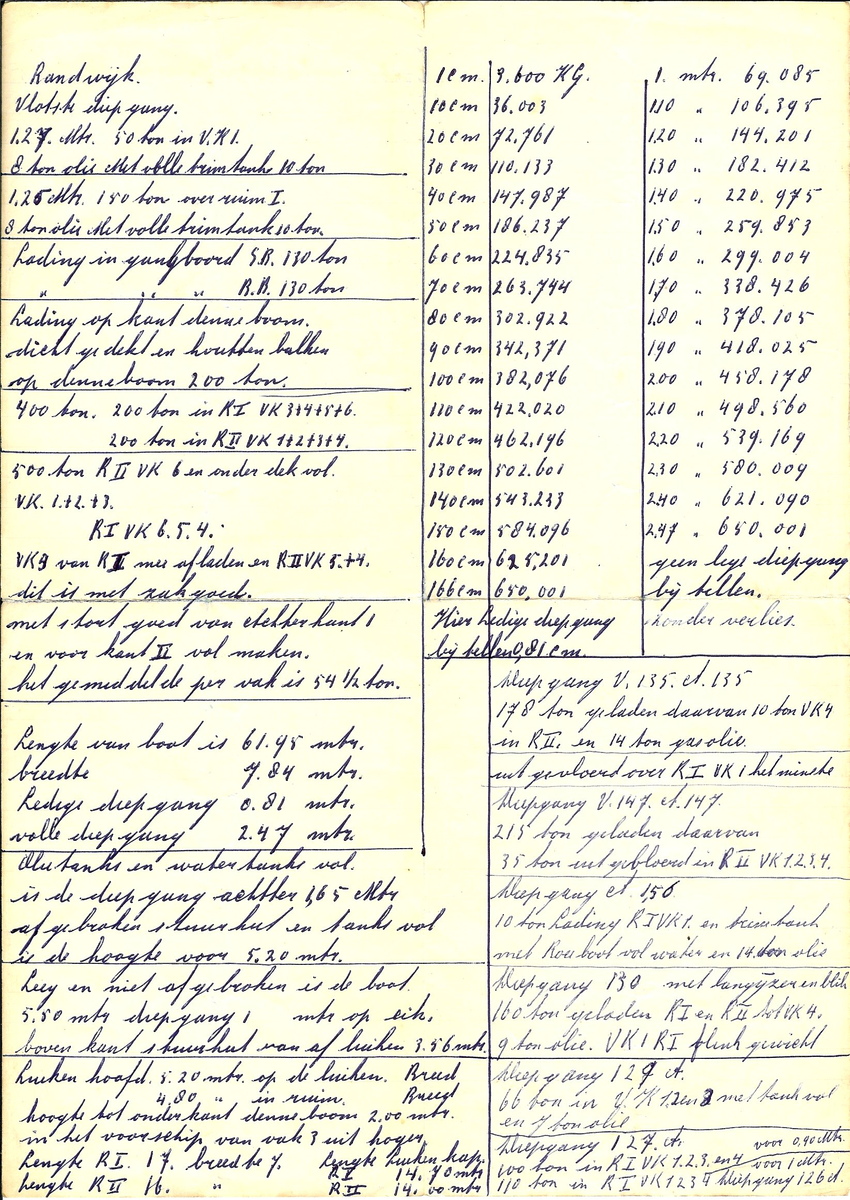 Randwijk.
Vlotste diepgang.
1.27. Mtr. 50 ton in V.K1.
8 ton olie Met volle trimtank 10 ton
1.25 Mtr. 150 ton over ruim I.
8 ton olie Met volle trimtank 10 ton.
Lading in gangboord S.B. 130 ton
" " " B.B. 130 ton
Lading op kant denneboom.
dicht gedekt en houtten balken
op denneboom 200 ton.
400 ton. 200 ton in R I VK 3+4+5+6.
200 ton in R II VK 1+2+3+4.
500 ton R II VK 6 en onder dek vol.
VK. 1.+2.+3.
R I VK 6.5.4.
VK3 van R I mee afladen en R II VK 5.+4.
dit is met zakgoed.
met stort goed van achterkant 1
en voor kant II vol maken.
het gemiddelde per vak is 54 1/2 ton.
Lengte van boot is 61.95 mtr.
breedte 7.84 mtr.
Ledige diepgang 0.81 mtr.
volle diepgang 2.47 mtr.
Olietanks en watertanks vol.
is de diepgang achter 1,65 Mtr
afgebroken stuurhut en tanks vol
is de hoogte voor 5.20 mtr.
Leeg en niet afgebroken is de boot.
5.50 mtr diepgang 1 mtr op eik.
bovenkant stuurhut van af luiken 3.56 mtr.
Luiken hoofd. 5.20 mtr. op de luiken. Breed
4.80 " in ruim. Breed
hoogte tot onderkant denneboom 2.00 mtr.
in het voorschip van vak 3 uit hoger
Lengte R I. 17. breedte 7. Lengte Luiken kap.
R I 14.70 mtr
Lengte R II 16. " R II 14.00 mtr
1 cm. 3.600 KG.
10 cm 36.003
20 cm 72.761
30 cm 110.133
40 cm 147.987
50 cm 186.237
60 cm 224.835
70 cm 263.744
80 cm 302.922
90 cm 342,371
100 cm 382,076
110 cm 422.020
120 cm 462,196
130 cm 502.601
140 cm 543.233
150 cm 584.096
160 cm 625,201
166 cm 650,001
Hier Ledige diepgang
bij tellen 0,81 cm.
1. mtr. 69.085
110 " 106.395
120 " 144.201
130 " 182.412
140 " 220.975
150 " 259.853
160 " 299.004
170 " 338.426
180 " 378.105
190 " 418.025
200 " 458.178
210 " 498.560
220 " 539.169
230 " 580.009
240 " 621.090
2.47 " 650.001
geen lege diepgang
bij tellen.
zonder verlies.
Diepgang V. 135. A. 135
178 ton geladen daarvan 10 ton VK4
in R II. en 14 ton gasolie.
uit gevloerd over R I VK 1 het minste
Diepgang V. 147. A. 147.
215 ton geladen daarvan
35 ton uitgebloerd in R II VK 1.2.3.4.
Diepgang A. 150.
10 ton Lading R I VK1. en trimtank
met Roeiboot vol water en 14. ton olie
Diepgang 130 met lang ijzer en blik
160 ton geladen R I en R II tot VK 4.
9 ton olie. VK 1 R I flink gewicht
Diepgang 127 A.
66 ton in V.K 1.2 en 3 met tank vol
en 7 ton olie
Diepgang 127. A. voor 0,90 Mtr.
100 ton in R I VK 1.2.3. en 4 voor 1 Mtr.
110 ton in R I VK 1 2 3 4 Diepgang 126 A.